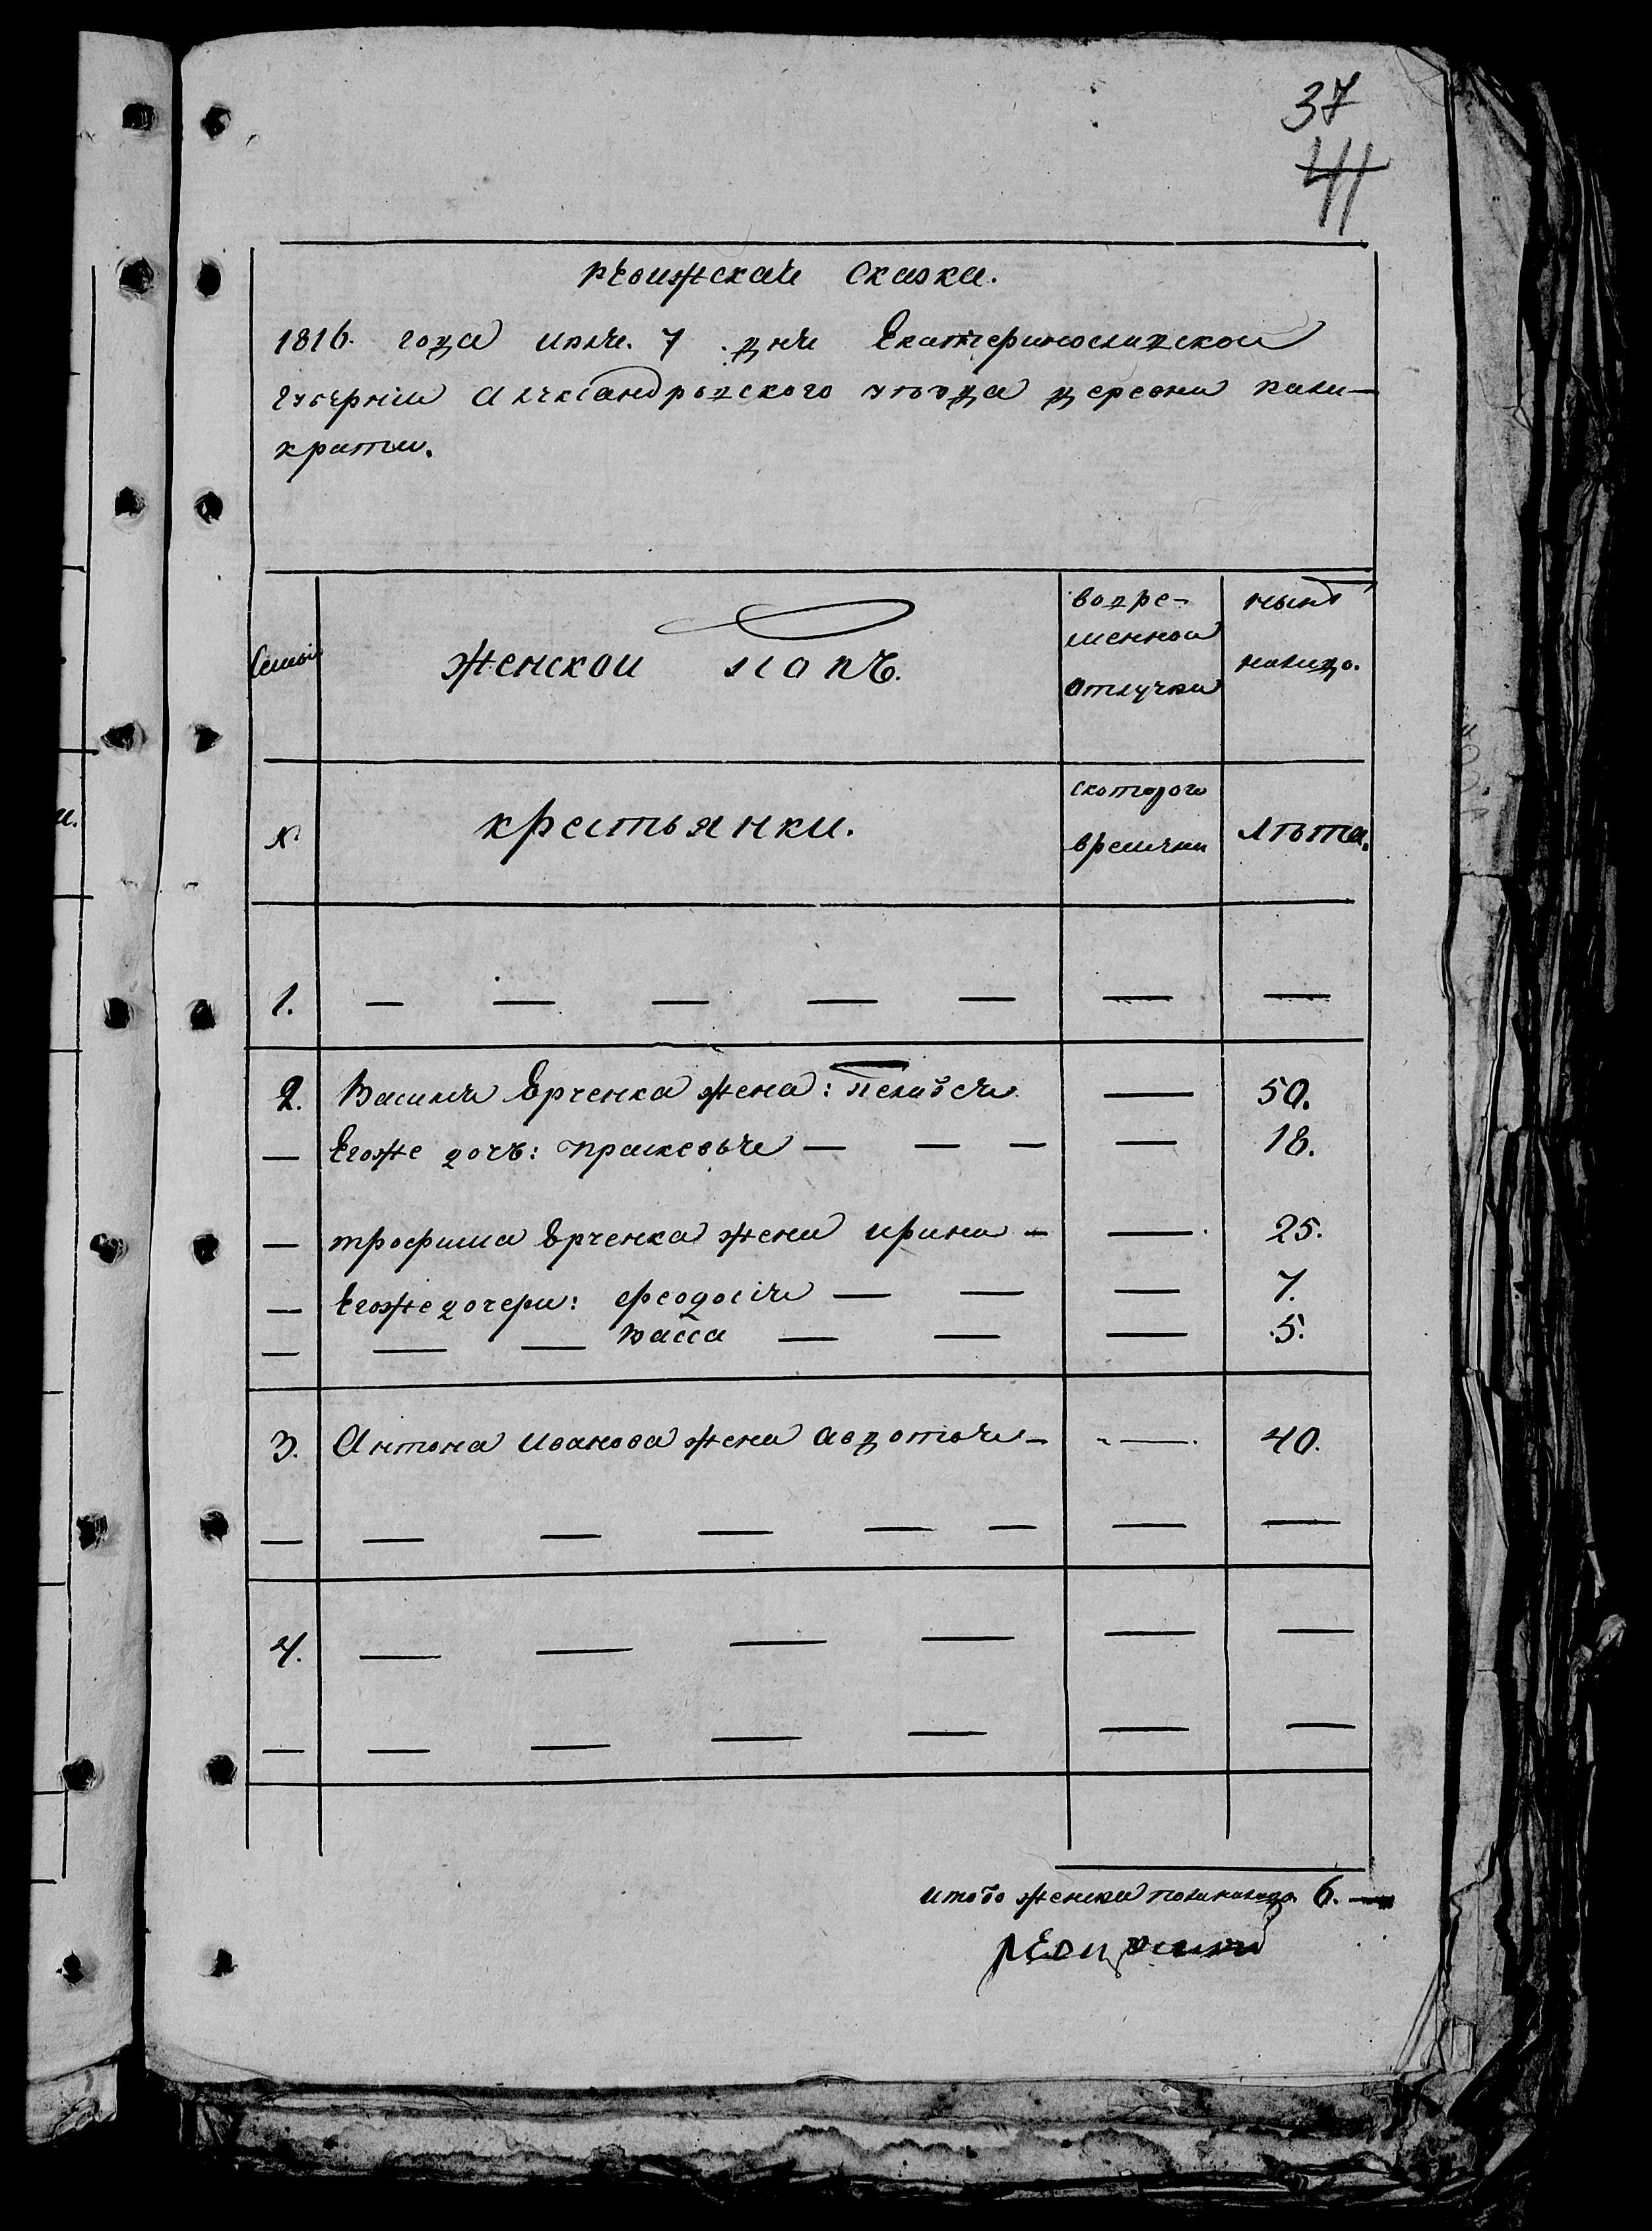 37
41
Ревижская Сказка.
1816. года июля. 7 дня Екатеринославской
губернии Александровского уѣзда деревни пани-
крати.
Семьи
женской полъ.
во вре-
менной
отлучки
нынѣ
налицо.
№
крестьянки.
скоторого
времяни
лѣта.
1. — — — — — — —
2. Василя Ерченка жена: — 50.
— Егоже дочъ: прасковья — — — — 18.
— трофима Ерченка жена ирина — — 25.
— Егоже дочери: феодосія — — — 7.
— — — васса — — — 5.
3. Антона Иванова жена авдотья — — 40.
— — — — — — — —
4. — — — — — —
— — — — — — —
итого женска пола налицо 6. —